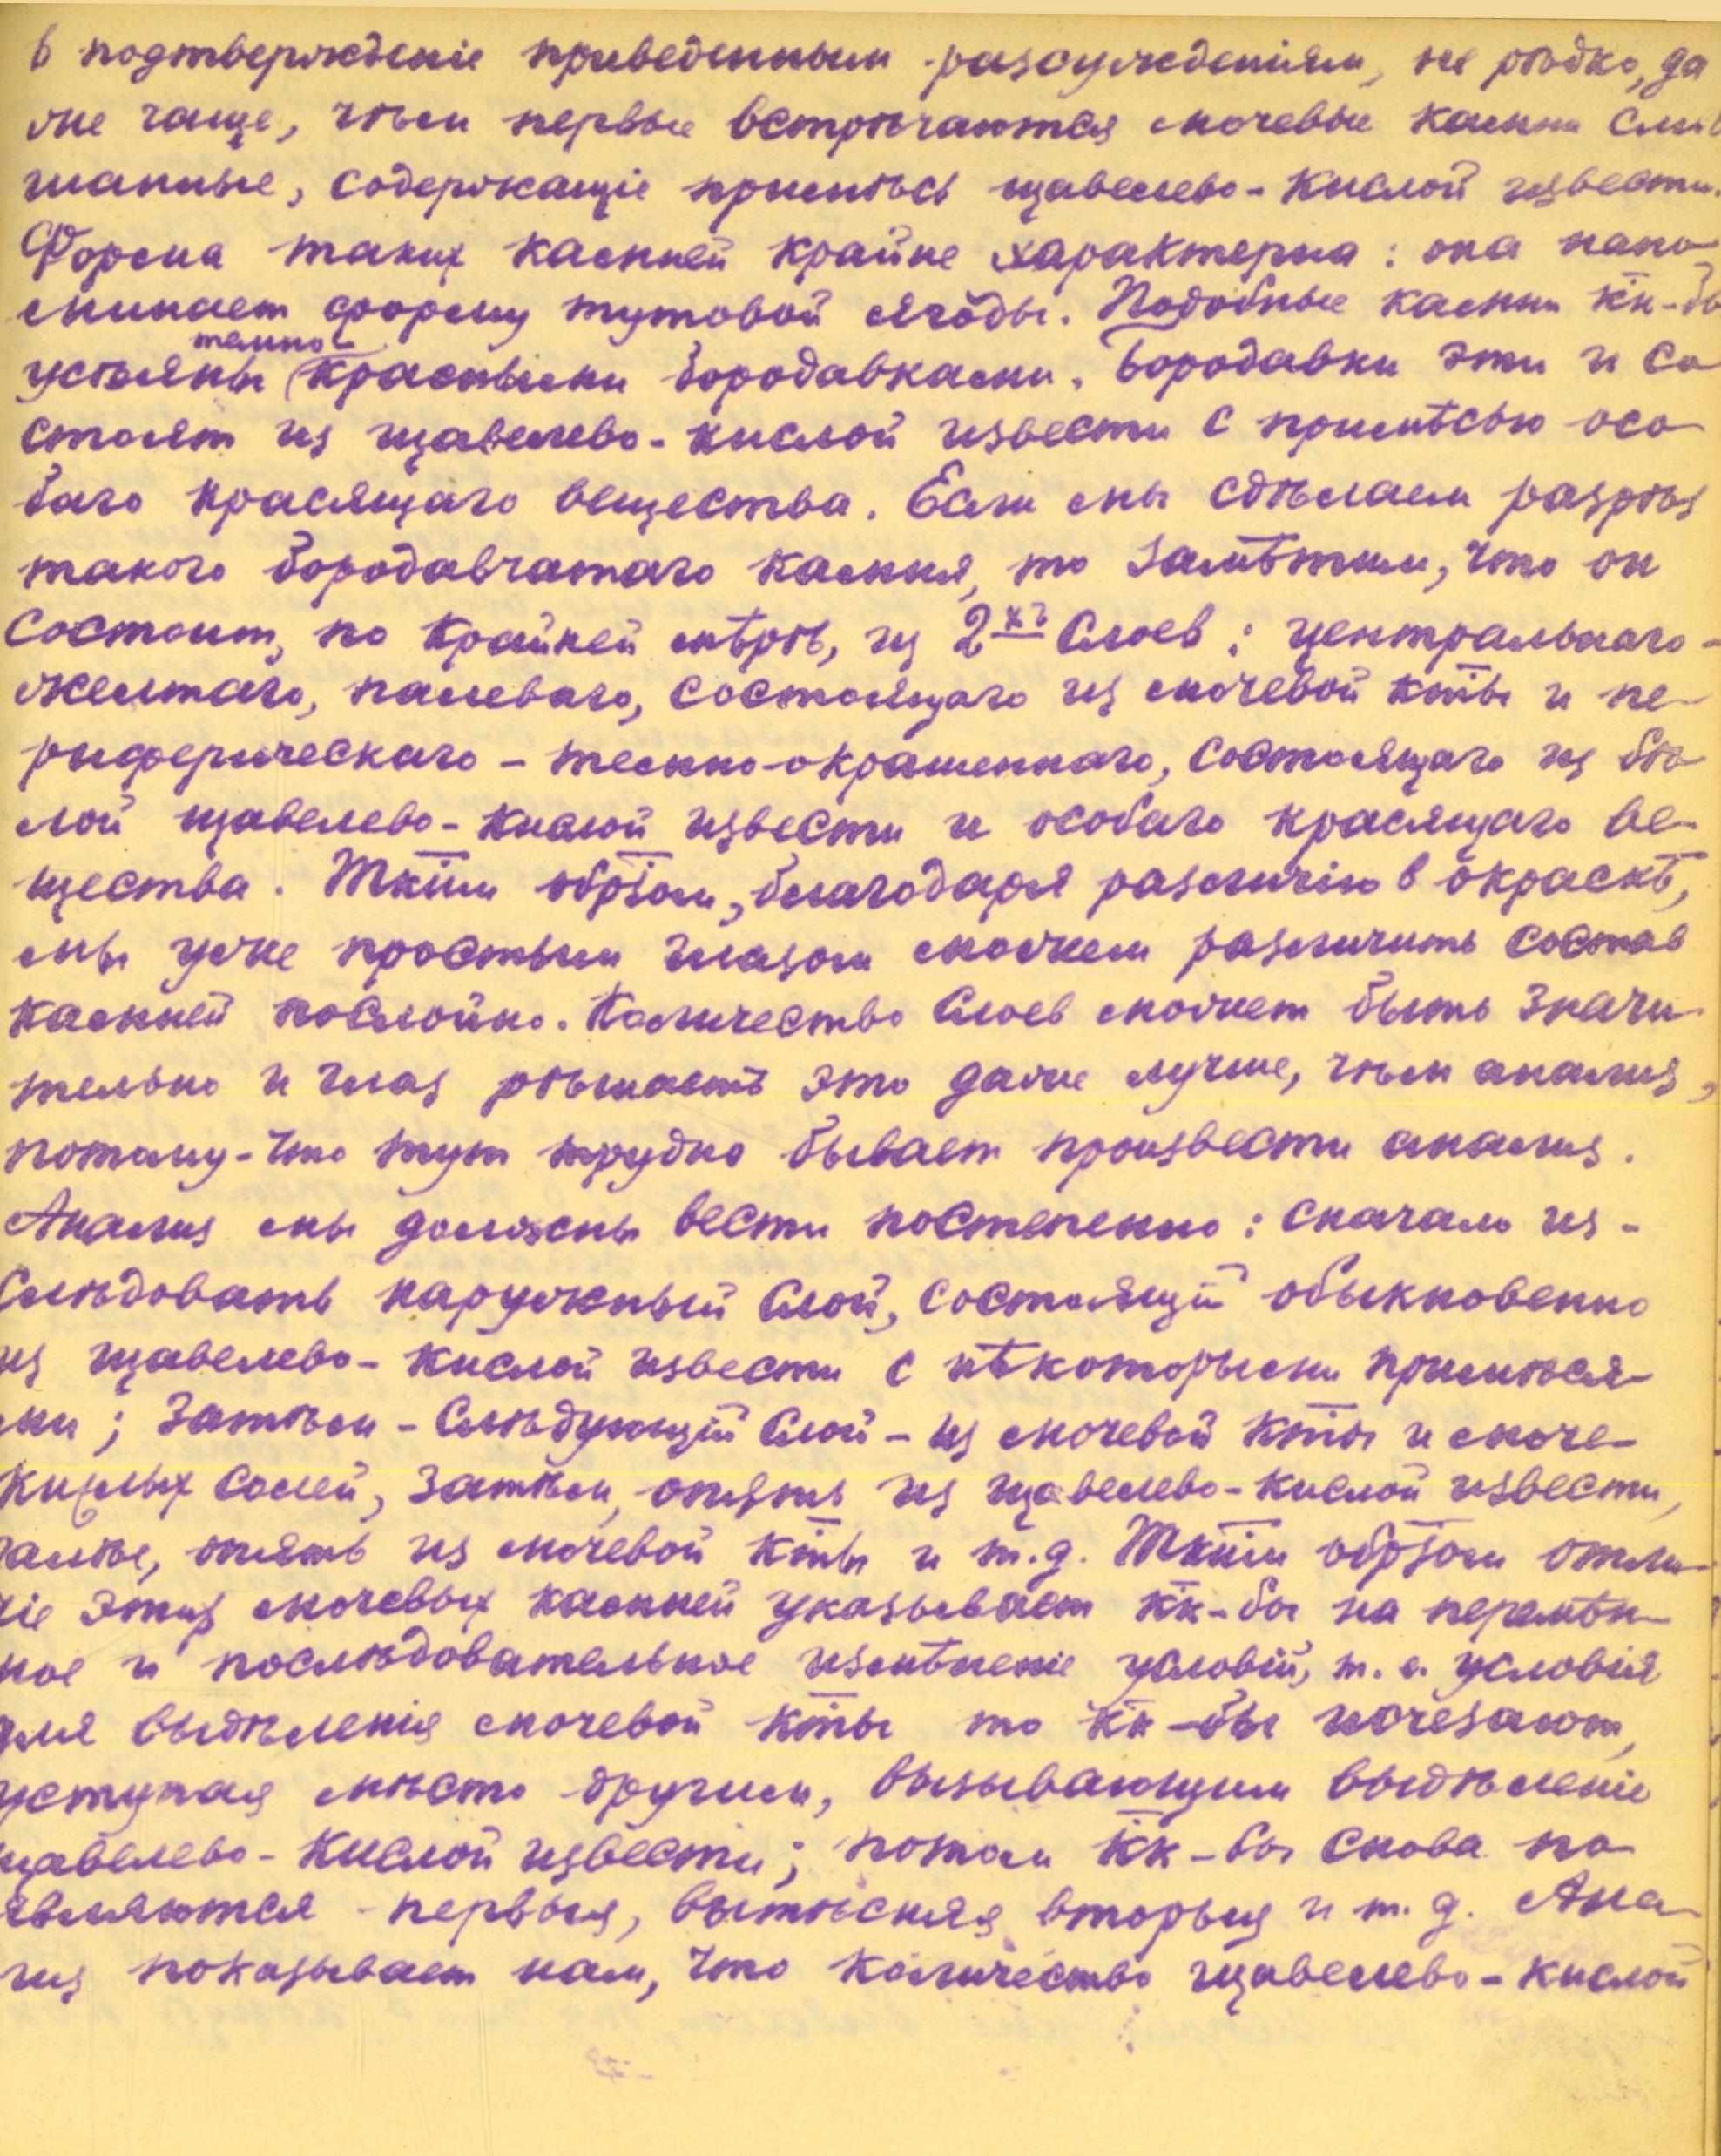 в подтвержденіе приведенным разсужденіям, не рѣдко, да
же чаще, чѣм первые встрѣчаются мочевые камни смѣ
шанные, содержащіе примѣсь щавелево-кислой извести.
Форма таких камней крайне характерна: она напо
минает форму тутовой ягоды. Подобные камни кк-бы
темно-
усѣяны красными бородавками. Бородавки эти и со
стоят из щавелево-кислой извести с примѣсью осо
баго красящаго вещества. Если мы сдѣлаем разрѣз
такого бородавчатаго камня, то замѣтим, что он
состоит, по крайней мѣрѣ, из 2хъ слоев: центральнаго -
желтаго, палеваго, состоящаго из мочевой кты и пе-
риферическаго - темно-окрашеннаго, состоящаго из бѣ
лой щавелево-кислой извести и особаго красящаго ве-
щества. Ткім обрзом, благодаря различію в окраскѣ,
мы уже простым глазом можем различить состав
камней послойно. Количество слоев может быть значи-
тельно и глаз рѣшаетъ это даже лучше, чѣм анализ,
потому-что тут трудно бывает произвести анализ.
Анализ мы должны вести постепенно: сначала из-
слѣдовать наружный слой, состоящій обыкновенно
из щавелево-кислой извести с нѣкоторыми примѣся-
ми; затѣм - слѣдующій слой - из мочевой кты и моче-
кислых солей, затѣм, опять из щавелево-кислой извести,
далѣе, опять из мочевой кты и т.д. Ткім обрзом отли-
чіе этих мочевых камней указывает кк-бы на перемѣн-
ное и послѣдовательное измѣненіе условій, т.е. условія
для выдѣленія мочевой кты то кк-бы исчезают,
уступая мѣсто другим, вызывающим выдѣленіе
щавелево-кислой извести; потом кк-бы снова по-
являются первыя, вытѣсняя вторыя и т.д. Ана-
лиз показывает нам, что количество щавелево-кислой